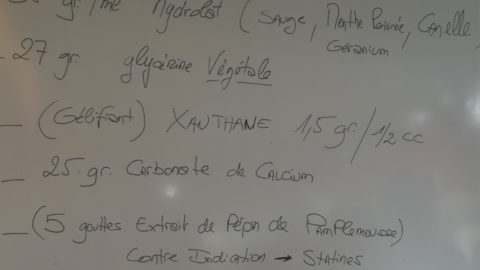 gr. /me Hydrolat (Sauge, Menthe Poivrée, Canelle,
Géranium
- 27 gr. glycérine Végétale
- (Gélifiant) XANTHANE 1,5 gr. / 1/2 cc
- 25 gr. Carbonate de CALCIUM
- (5 gouttes Extrait de Pépin de PAMPLEMOUSSE)
Contre Indication → STATINES